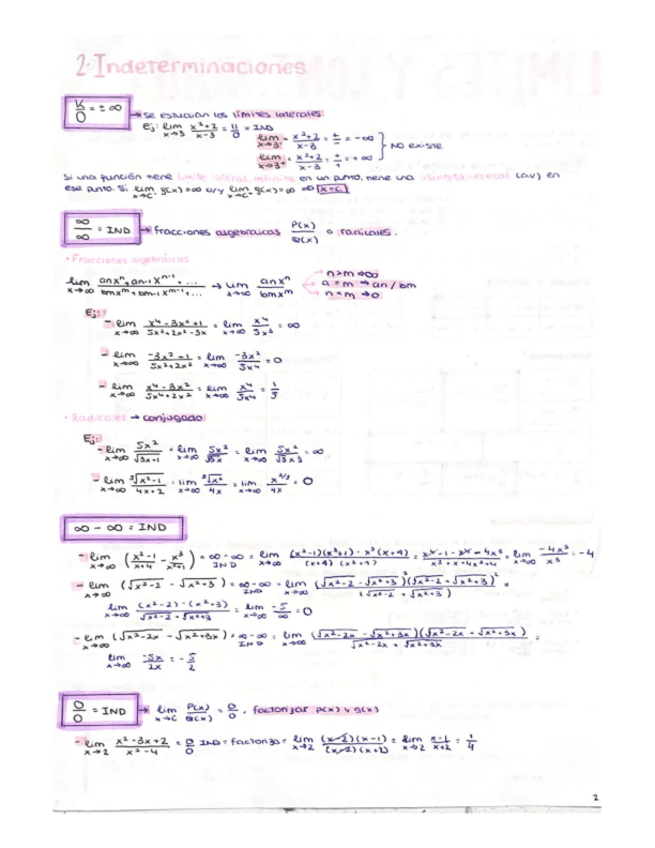 2. Indeterminaciones
K/0 = ± ∞ → Se estudian los límites laterales:
Ej: lim x→3 x²+2/x-3 = 11/0 = IND
lim x→3⁻ = x²+2/x-3 = +/- = -∞
lim x→3⁺ = x²+2/x-3 = +/+ = +∞ } NO EXISTE
Si una función tiene límite lateral infinito en un punto, tiene una asíntota vertical (av) en
ese punto. Si lim x→c⁻ g(x)=∞ o/y lim x→c⁺ g(x)=∞ ⇒ x=c
∞/∞ = IND → Fracciones algebraicas P(x)/Q(x) o radicales.
• Fracciones algebraicas
lim x→∞ anxⁿ+an-1xⁿ⁻¹+.../bmxᵐ+bm-1xᵐ⁻¹+... → lim x→∞ anxⁿ/bmxᵐ
→ n>m ⇒ ∞
→ a=m → an/bm
→ n<m → 0
Ej:
- lim x→∞ x⁴-3x²+1/5x³+2x²-3x = lim x→∞ x⁴/5x³ = ∞
- lim x→∞ -3x²+1/5x³+2x² = lim x→∞ -3x²/5x⁴ = 0
- lim x→∞ x⁴-3x²/5x⁴+2x² = lim x→∞ x⁴/5x⁴ = 1/5
• Radicales → conjugado
Ej:
- lim x→∞ 5x²/√3x+1 = lim x→∞ 5x²/√3x = lim x→∞ 5x²/√3x³ = ∞
- lim x→∞ ³√x²-1/4x+2 = lim x→∞ ³√x²/4x = lim x→∞ x^2/3/4x = 0
∞ - ∞ = IND
- lim x→∞ (x²-1/x+4 - x³/x²+1) = ∞-∞ IND = lim x→∞ (x²-1)(x²+1)-x³(x+4)/(x+4)(x²+1) = x⁴-1-x⁴-4x³/x³+x+4x²+4 = lim x→∞ -4x³/x³ = -4
- lim x→∞ (√x²-2 - √x²+3) = ∞-∞ IND = lim x→∞ (√x²-2 - √x²+3)(√x²-2 + √x²+3)/(√x²-2 + √x²+3) =
lim x→∞ (x²-2)-(x²+3)/√x²-2+√x²+3 = lim x→∞ -5/∞ = 0
- lim x→∞ (√x²-2x - √x²+3x) = ∞-∞ IND = lim x→∞ (√x²-2x - √x²+3x)(√x²-2x + √x²+3x)/√x²-2x + √x²+3x =
lim x→∞ -5x/2x = -5/2
0/0 = IND → lim x→c P(x)/Q(x) = 0/0, factorizar P(x) y Q(x)
- lim x→2 x²-3x+2/x²-4 = 0/0 IND = Factorizo = lim x→2 (x-2)(x-1)/(x-2)(x+2) = lim x→2 x-1/x+2 = 1/4
2